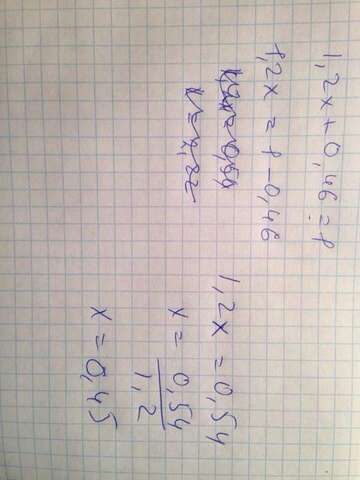 1,2x+0,46=1
1,2x = 1-0,46
1,2x = 0,54
x = 0,54/1,2
x = 0,45